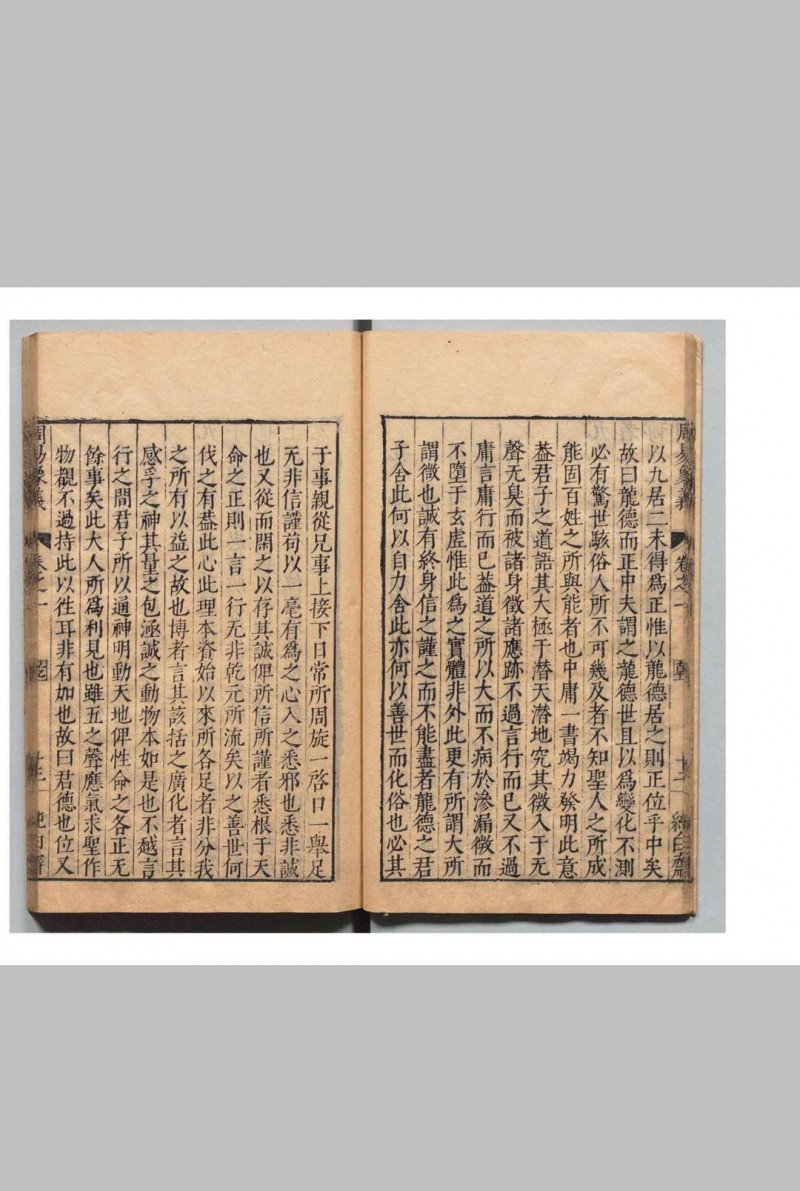 以九居二未得為正惟以龍德居之則正位乎中矣
故曰龍德而正中夫謂之龍德世且以為變化不測
必有驚世駭俗人所不可幾及者不知聖人之所成
能固百姓之所與能者也中庸一書竭力發明此意
葢君子之道語其大極于潛天潛地究其微入于无
聲无臭而被諸身徵諸應跡不過言行而已又不過
庸言庸行而已葢道之所以大而不病於滲漏微而
不墮于玄虛惟此為之實體非外此更有所謂大所
謂微也誠有終身信之謹之而不能盡者龍德之君
子舍此何以自力舍此亦何以善世而化俗也必其
周易象義
卷之一
十二
純白齋
于事親從兄事上接下日常所周旋一啓口一舉足
无非信謹苟以一毫有為之心入之悉邪也悉非誠
也又從而閑之以存其誠俾所信所謹者悉根于天
命之正則一言一行无非乾元所流矣以之善世何
伐之有葢此心此理本眷始以來所各足者非分我
之所有以益之故也博者言其該括之廣化者言其
感孚之神其量之包涵誠之動物本如是也不越言
行之間君子所以通神明動天地俾性命之各正无
餘事矣此大人所為利見也雖五之聲應氣求聖作
物覩不過持此以徃耳非有如也故曰君德也位又
周易象義
卷之一
十二
純白齋